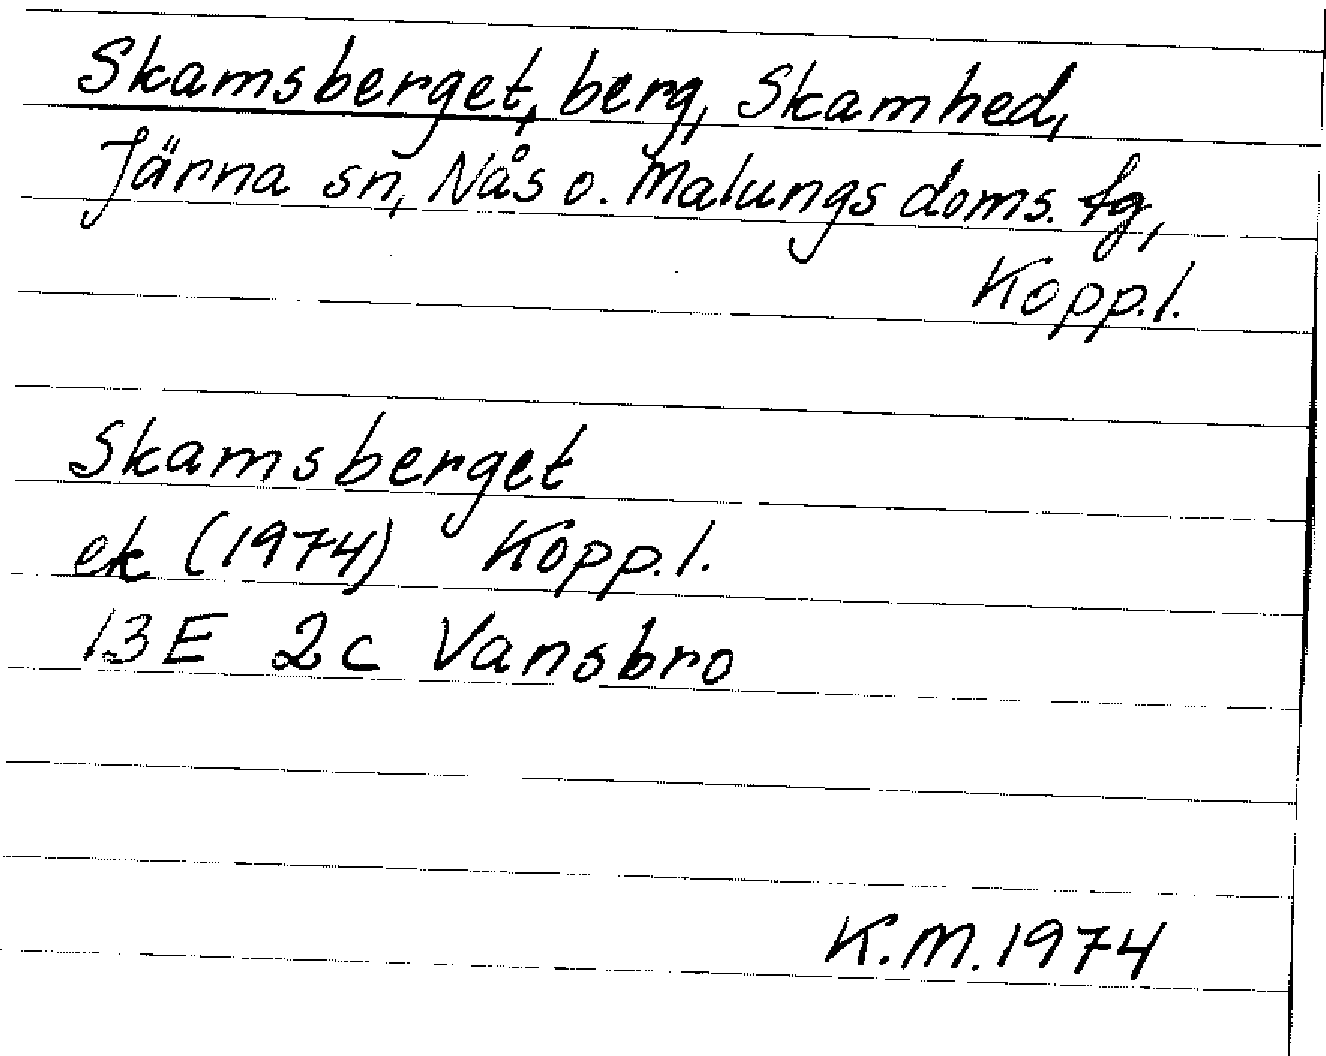 Skamsberget, berg, Skamhed,
Järna sn, Nås o. Malungs doms. tg,
Kopp.l.
Skamsberget
ek (1974) Kopp.l.
13E 2c Vansbro
K.M. 1974